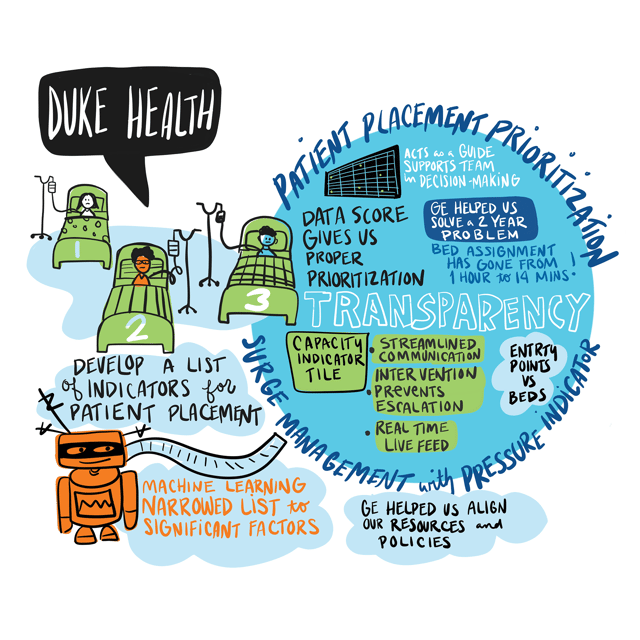 DUKE HEALTH
PATIENT PLACEMENT PRIORITIZATION
ACTS as a GUIDE
SUPPORTS TEAM
in DECISION-MAKING
DATA SCORE
GIVES US
PROPER
PRIORITIZATION
GE HELPED US
SOLVE a 2 YEAR
PROBLEM
BED ASSIGNMENT
HAS GONE FROM
1 HOUR to 14 MINS!
1
2
3
TRANSPARENCY
CAPACITY
INDICATOR
TILE
• STREAMLINED
COMMUNICATION
• INTERVENTION
PREVENTS
ESCALATION
• REAL TIME
LIVE FEED
ENTRTY
POINTS
VS
BEDS
SURGE MANAGEMENT with PRESSURE INDICATOR
DEVELOP A LIST
of INDICATORS for
PATIENT PLACEMENT
MACHINE LEARNING
NARROWED LIST to
SIGNIFICANT FACTORS
GE HELPED US ALIGN
OUR RESOURCES and
POLICIES